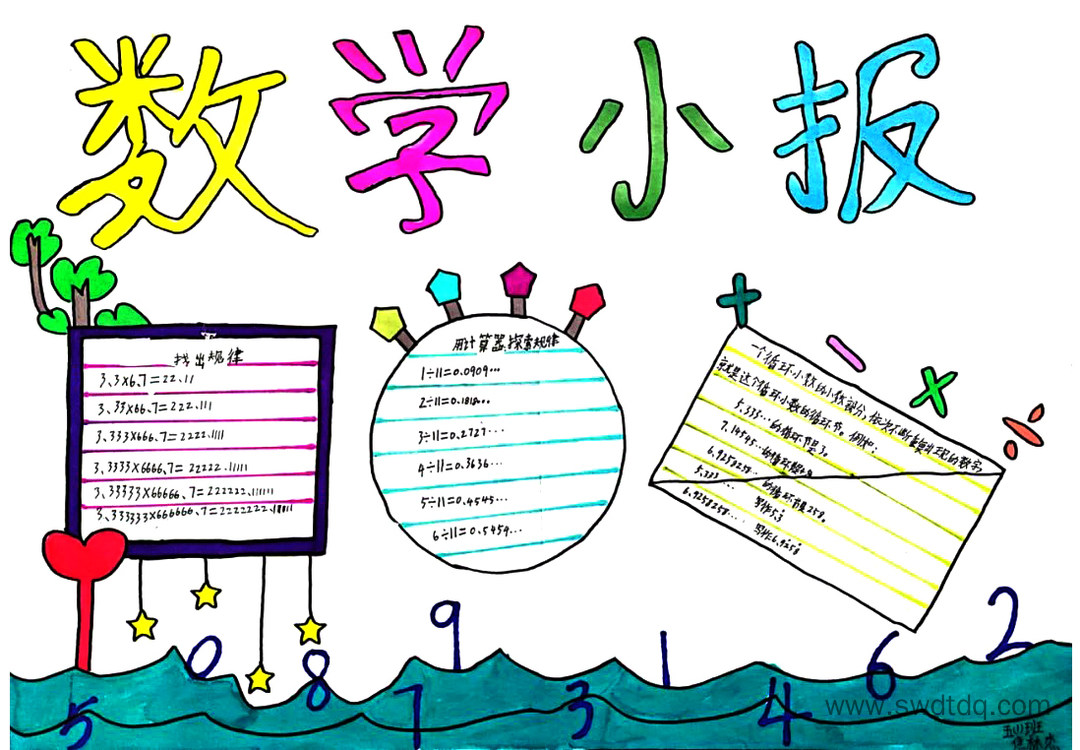 数学小报
找出规律
3.3×6.7=22.11
3.33×66.7=222.111
3.333×666.7=2222.1111
3.3333×6666.7=22222.11111
3.33333×66666.7=222222.111111
3.333333×666666.7=2222222.
用计算器探索规律
1÷11=0.0909…
2÷11=0.1818…
3÷11=0.2727…
4÷11=0.3636…
5÷11=0.4545…
6÷11=0.5454…
一个循环小数的小数部分，依次不断重复出现的数字
就是这个循环小数的循环节。例如：
5.333… 的循环节是3。
7.14545… 的循环节是
6.9258258… 的循环节是258。
5.333… 写作5.3̇
6.9258258… 写作6.92̇58̇
+ − × ÷
0 9 1 6 2
5 8 7 3 4
www.swdtdq.com